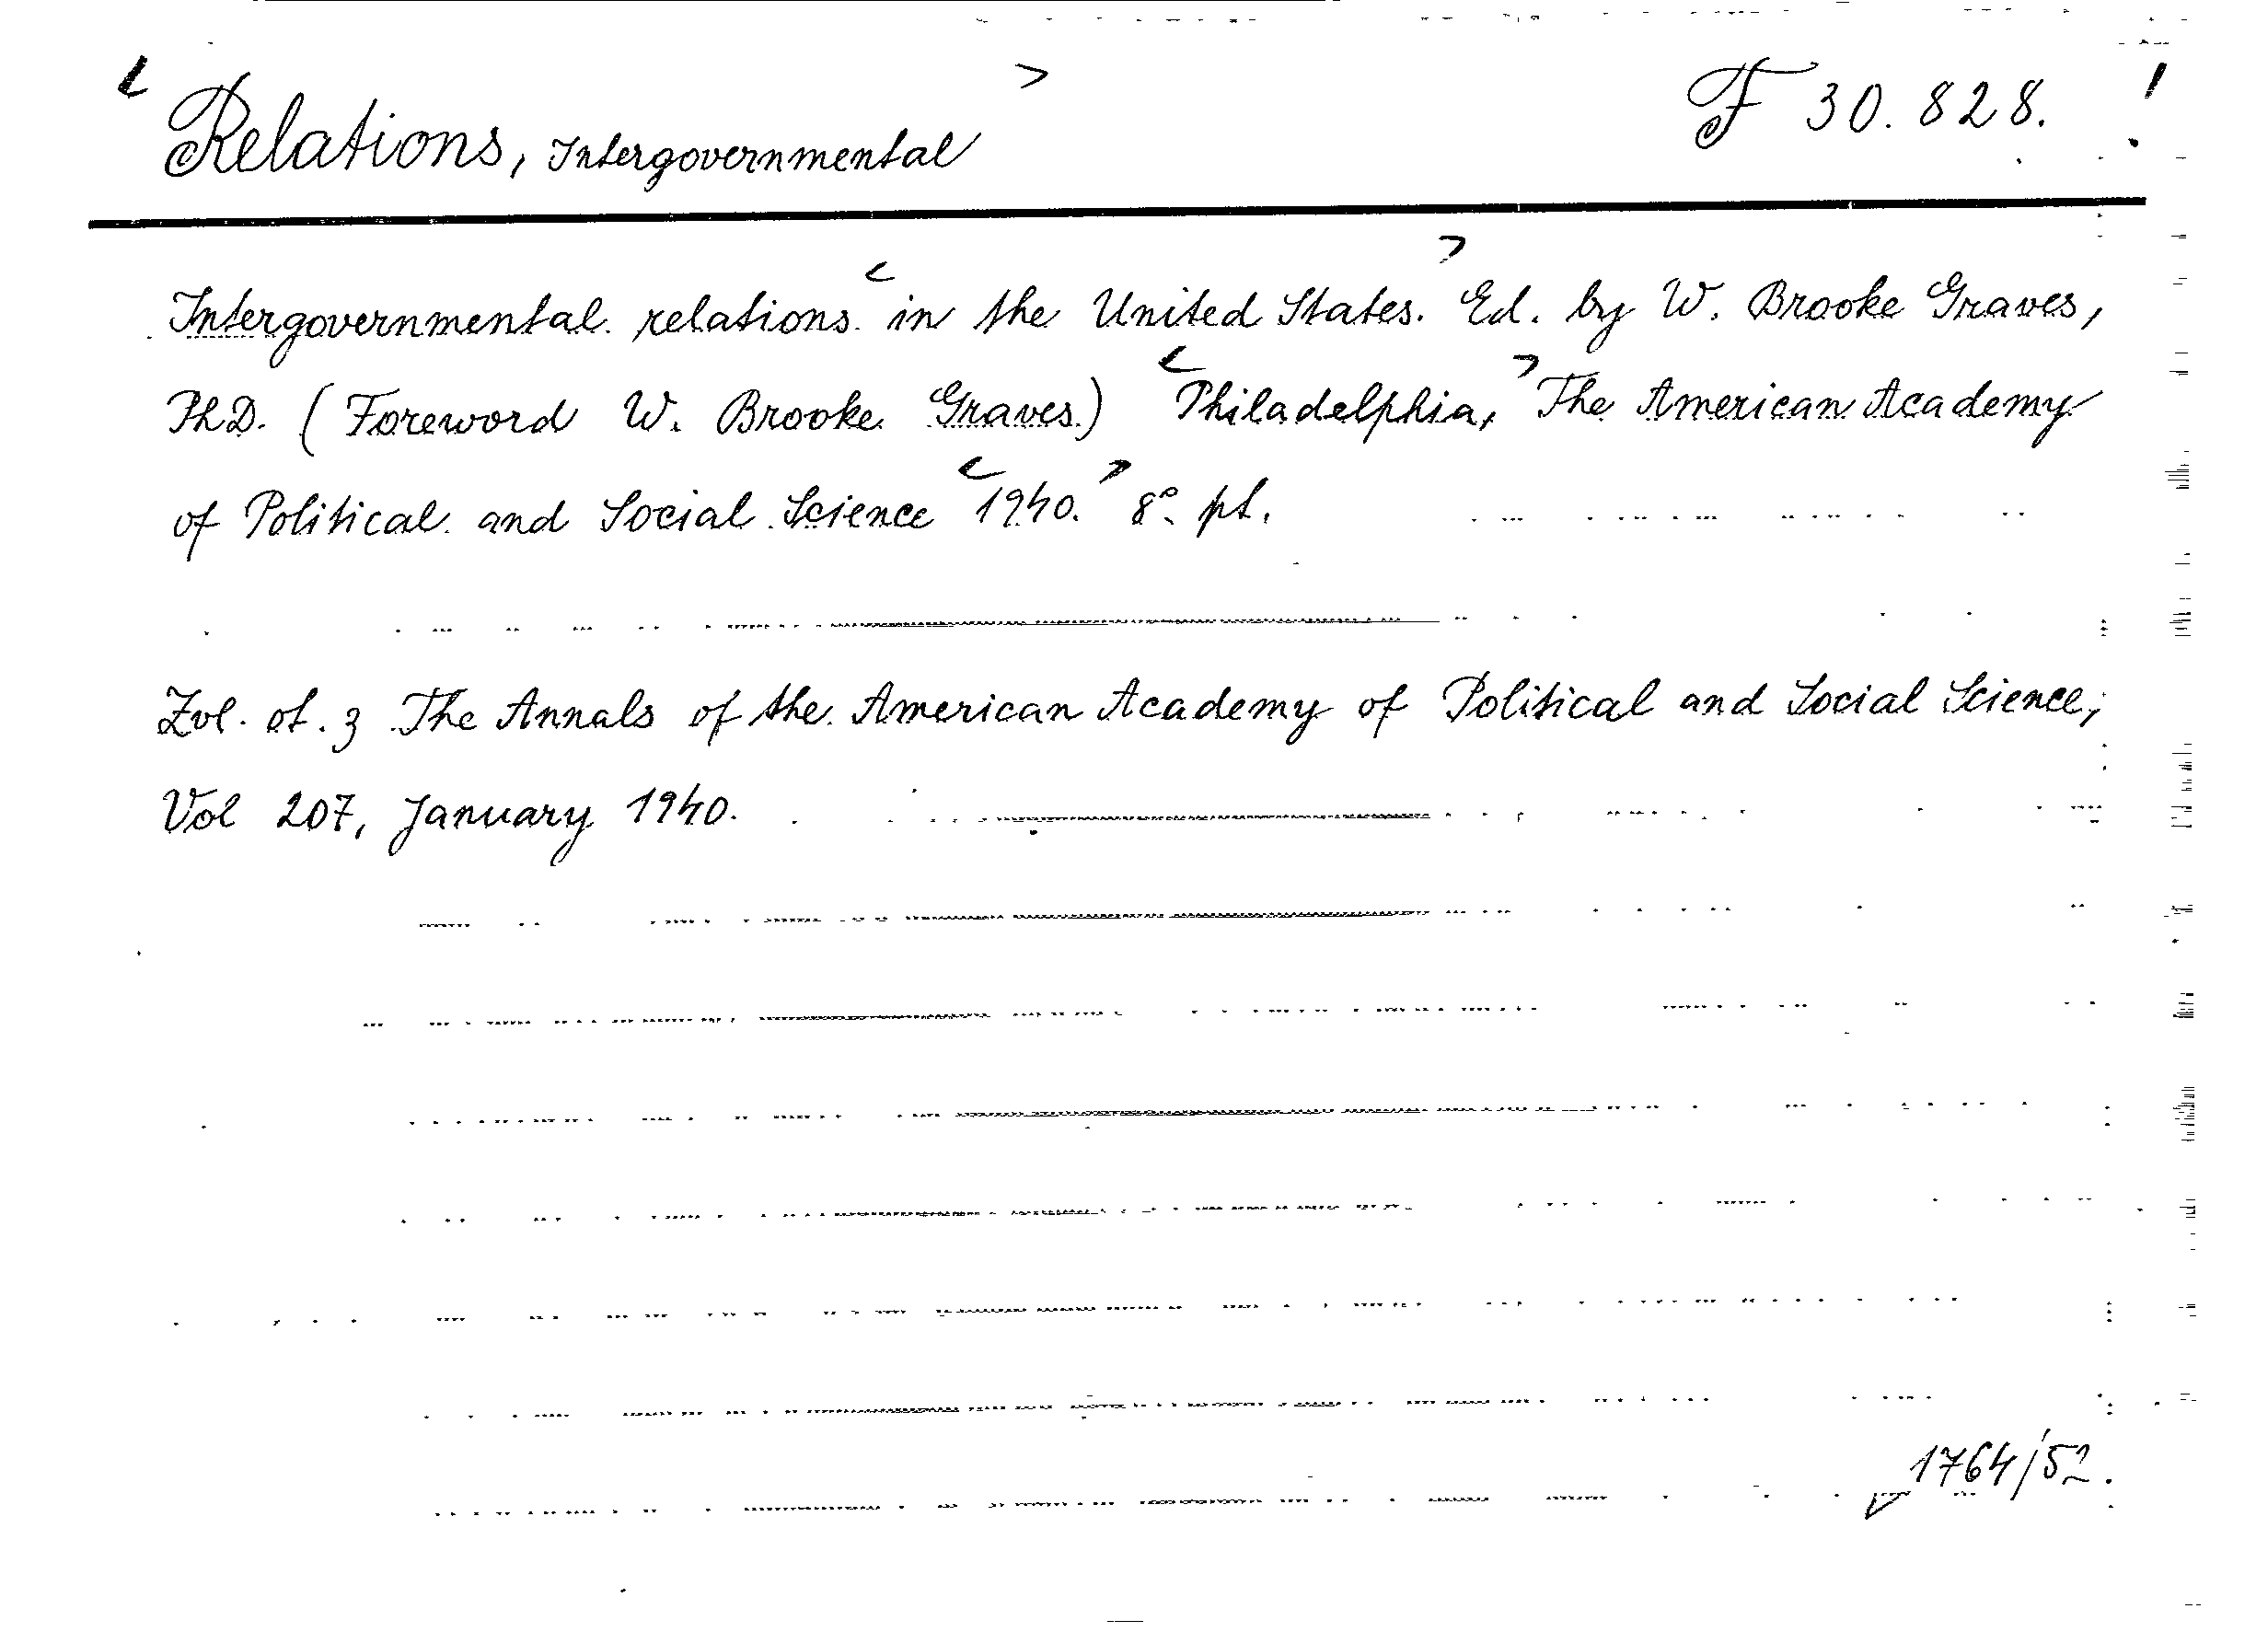 < Relations, Intergovernmental > F 30.828. !
Intergovernmental relations < in the United States. > Ed. by W. Brooke Graves,
Ph.D. (Foreword W. Brooke Graves) < Philadelphia, > The American Academy
of Political and Social Science < 1940. > 8° pt.
Zvl. ot. z The Annals of the American Academy of Political and Social Science,
Vol 207, January 1940.
1764/52.